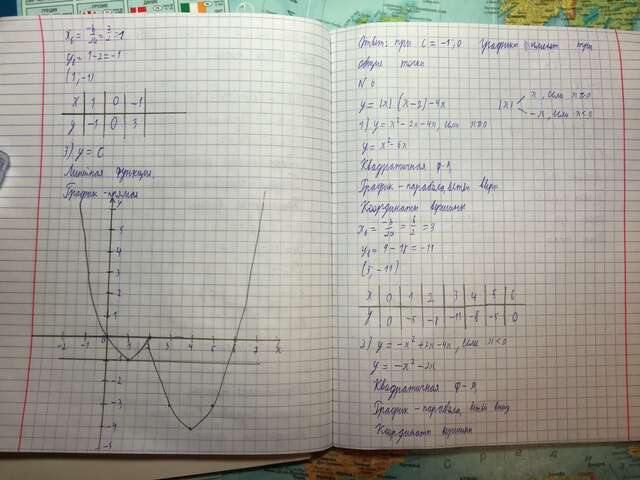 x₀ = -b/2a = 2/2 = 1
y₀ = 1-2 = -1
(1, -1)
x 1 0 -1
y -1 0 3
3) y = C
Линейная функция.
График - прямая
y
5
4
3
2
1
-2 -1 0 1 2 3 4 5 6 7 x
-1
-2
-3
-4
-5
Ответ: при C = -1; 0 графики имеют три
общие точки
N 6
y = |x|(x-2)-4x |x| x, если x≥0
-x, если x<0
1) y = x²-2x-4x, если x≥0
y = x²-6x
Квадратичная ф-я,
График - парабола, ветви вверх
Координаты вершины
x₀ = -b/2a = 6/2 = 3
y₀ = 9-18 = -11
(3, -11)
x 0 1 2 3 4 5 6
y 0 -5 -8 -11 -8 -5 0
2) y = -x²+2x-4x, если x<0
y = -x²-2x
Квадратичная ф-я,
График - парабола, ветви вниз
Координаты вершины